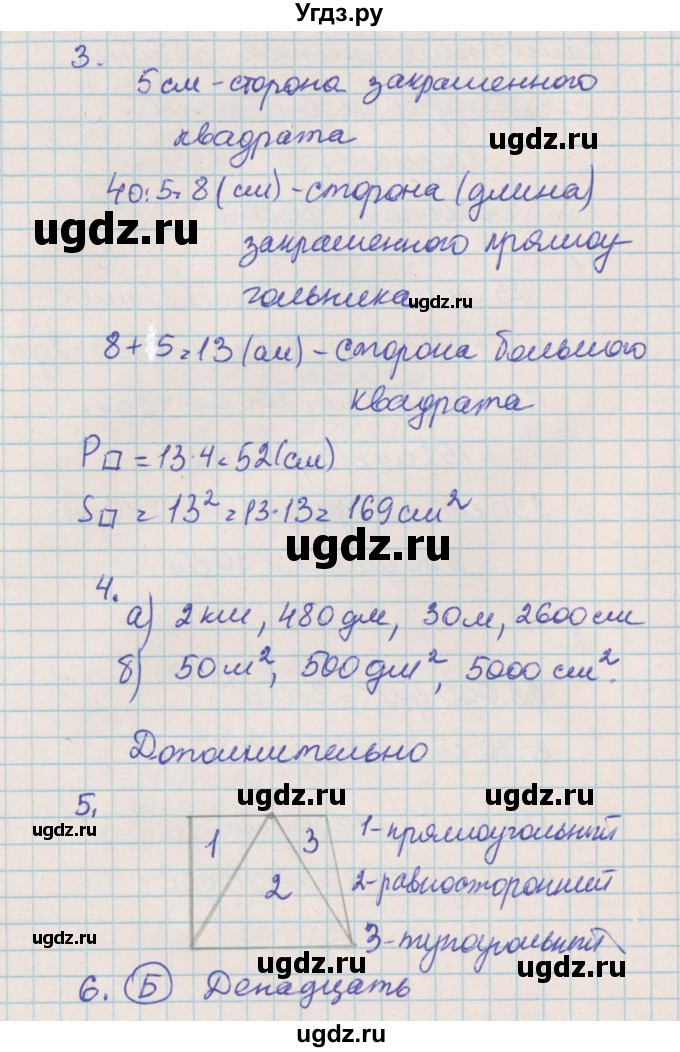 Угдз.ру
3.
5 см - сторона закрашенного
квадрата
ugdz.ru
40:5=8 (см) - сторона (длина)
ugdz.ru
закрашенного прямоу
гольника
ugdz.ru
8+5=13 (см) - сторона большого
квадрата
P□ = 13·4=52 (см)
S□ = 13² = 13·13 = 169 см²
ugdz.ru
4.
а) 2 км, 480 дм, 30 м, 2600 см
б) 50 м², 500 дм², 5000 см².
ugdz.ru
Дополнительно
ugdz.ru ugdz.ru
5.
ugdz.ru
1 3 1-прямоугольный
2 2-равносторонний
ugdz.ru
3-тупоугольный
ugdz.ru ugdz.ru
6. Б Денадцать
ugdz.ru
ugdz.ru